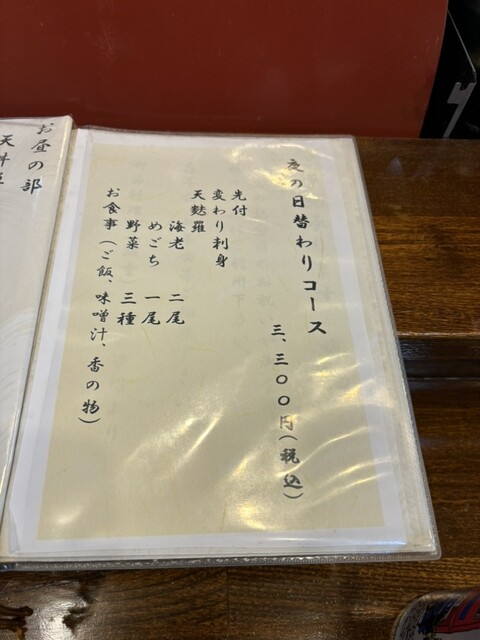 夜の日替わりコース
三、三〇〇円(税込)
先付
変わり刺身
天麩羅
海老 二尾
めごち 一尾
野菜 三種
お食事(ご飯、味噌汁、香の物)
お昼の部
天丼